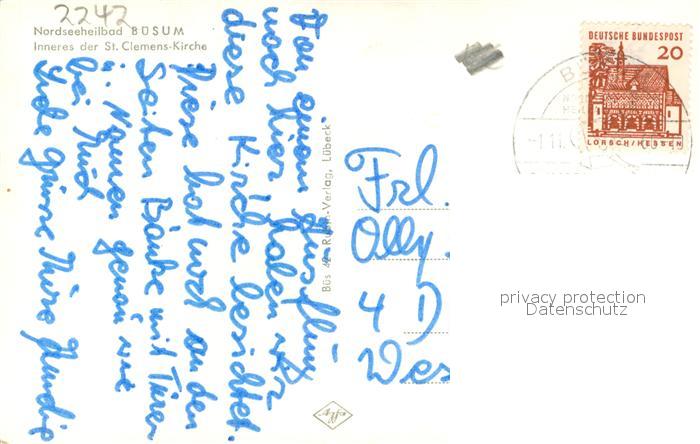 2242
Nordseeheilbad BÜSUM
Inneres der St. Clemens-Kirche
Von einem Ausflug
nach hier haben wir
diese Kirche besichtet.
Diese hat noch an den
Seiten Bänke mit Türen
u. Namen genau wie
bei Euch
Liebe Grüsse
Büs 42 Rubin-Verlag, Lübeck
Agfa
DEUTSCHE BUNDESPOST
20
LORSCH/HESSEN
BÜ
-1.11.
Frl.
Olly
4 D
Wes
privacy protection
Datenschutz